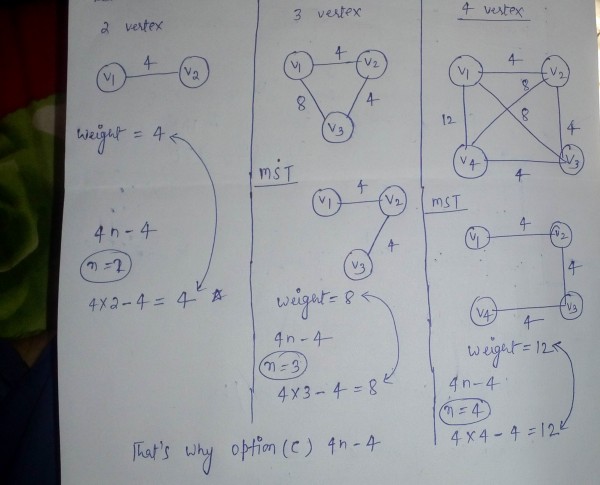 2 vertex
v1 4 v2
weight = 4
4n-4
n=2
4×2-4 = 4
3 vertex
v1 4 v2
8 4
v3
MST
v1 4 v2
4
v3
weight = 8
4n-4
n=3
4×3-4 = 8
4 vertex
v1 4 v2
8
12 8 4
v4 4 v3
MST
v1 4 v2
4
v4 4 v3
weight = 12
4n-4
n=4
4×4-4 = 12
That's why option (C) 4n-4